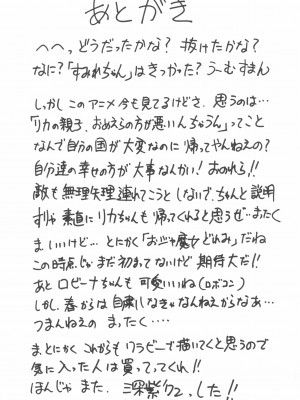 あとがき
へへっ どうだったかな？ 抜けたかな？
なに？「すみれちゃん」はきつかった？ うーむすまん
しかし このアニメ今も見てるけどさ、思うのは…
「リカの親子、おめえらの方が悪いんちゃうん」ってこと
なんで自分の国が大変なのに帰ってやんねえの？
自分達の幸せの方が大事なんかい！ おのれら!!
敵も無理矢理連れてこうとしないで、ちゃんと説明
すりゃ 素直にリカちゃんも帰ってくれると思うぜ…またく
ま いいけど… とにかく「おジャ魔女どれみ」だね
この時点じゃまだ初まってないけど 期待大だ!!
あと ロビーナちゃんも 可愛いいね(ロボコン)
しかし、春からは自粛しなきゃなんねえからなあ…
つまんねえの まったく‥‥
まとにかく これからもワラビーで描いてくと思うので
気に入った人は買ってってくれ!!
ほんじゃ また、深紫 でした!!